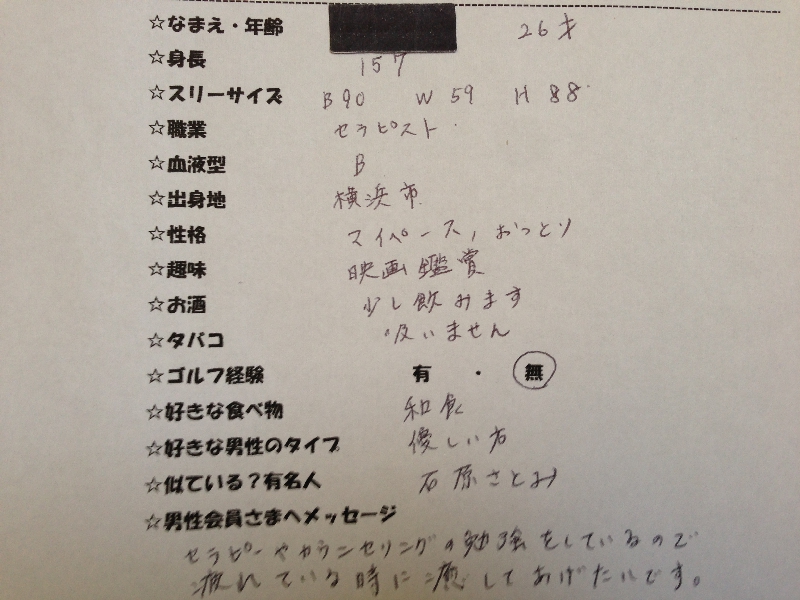 ☆なまえ・年齢 26才
☆身長 157
☆スリーサイズ B90 W59 H88
☆職業 セラピスト
☆血液型 B
☆出身地 横浜市
☆性格 マイペース,おっとり
☆趣味 映画鑑賞
☆お酒 少し飲みます
☆タバコ 吸いません
☆ゴルフ経験 有・無
☆好きな食べ物 和食
☆好きな男性のタイプ 優しい方
☆似ている?有名人 石原さとみ
☆男性会員さまへメッセージ
セラピーやカウンセリングの勉強をしているので
疲れている時に癒してあげたいです。